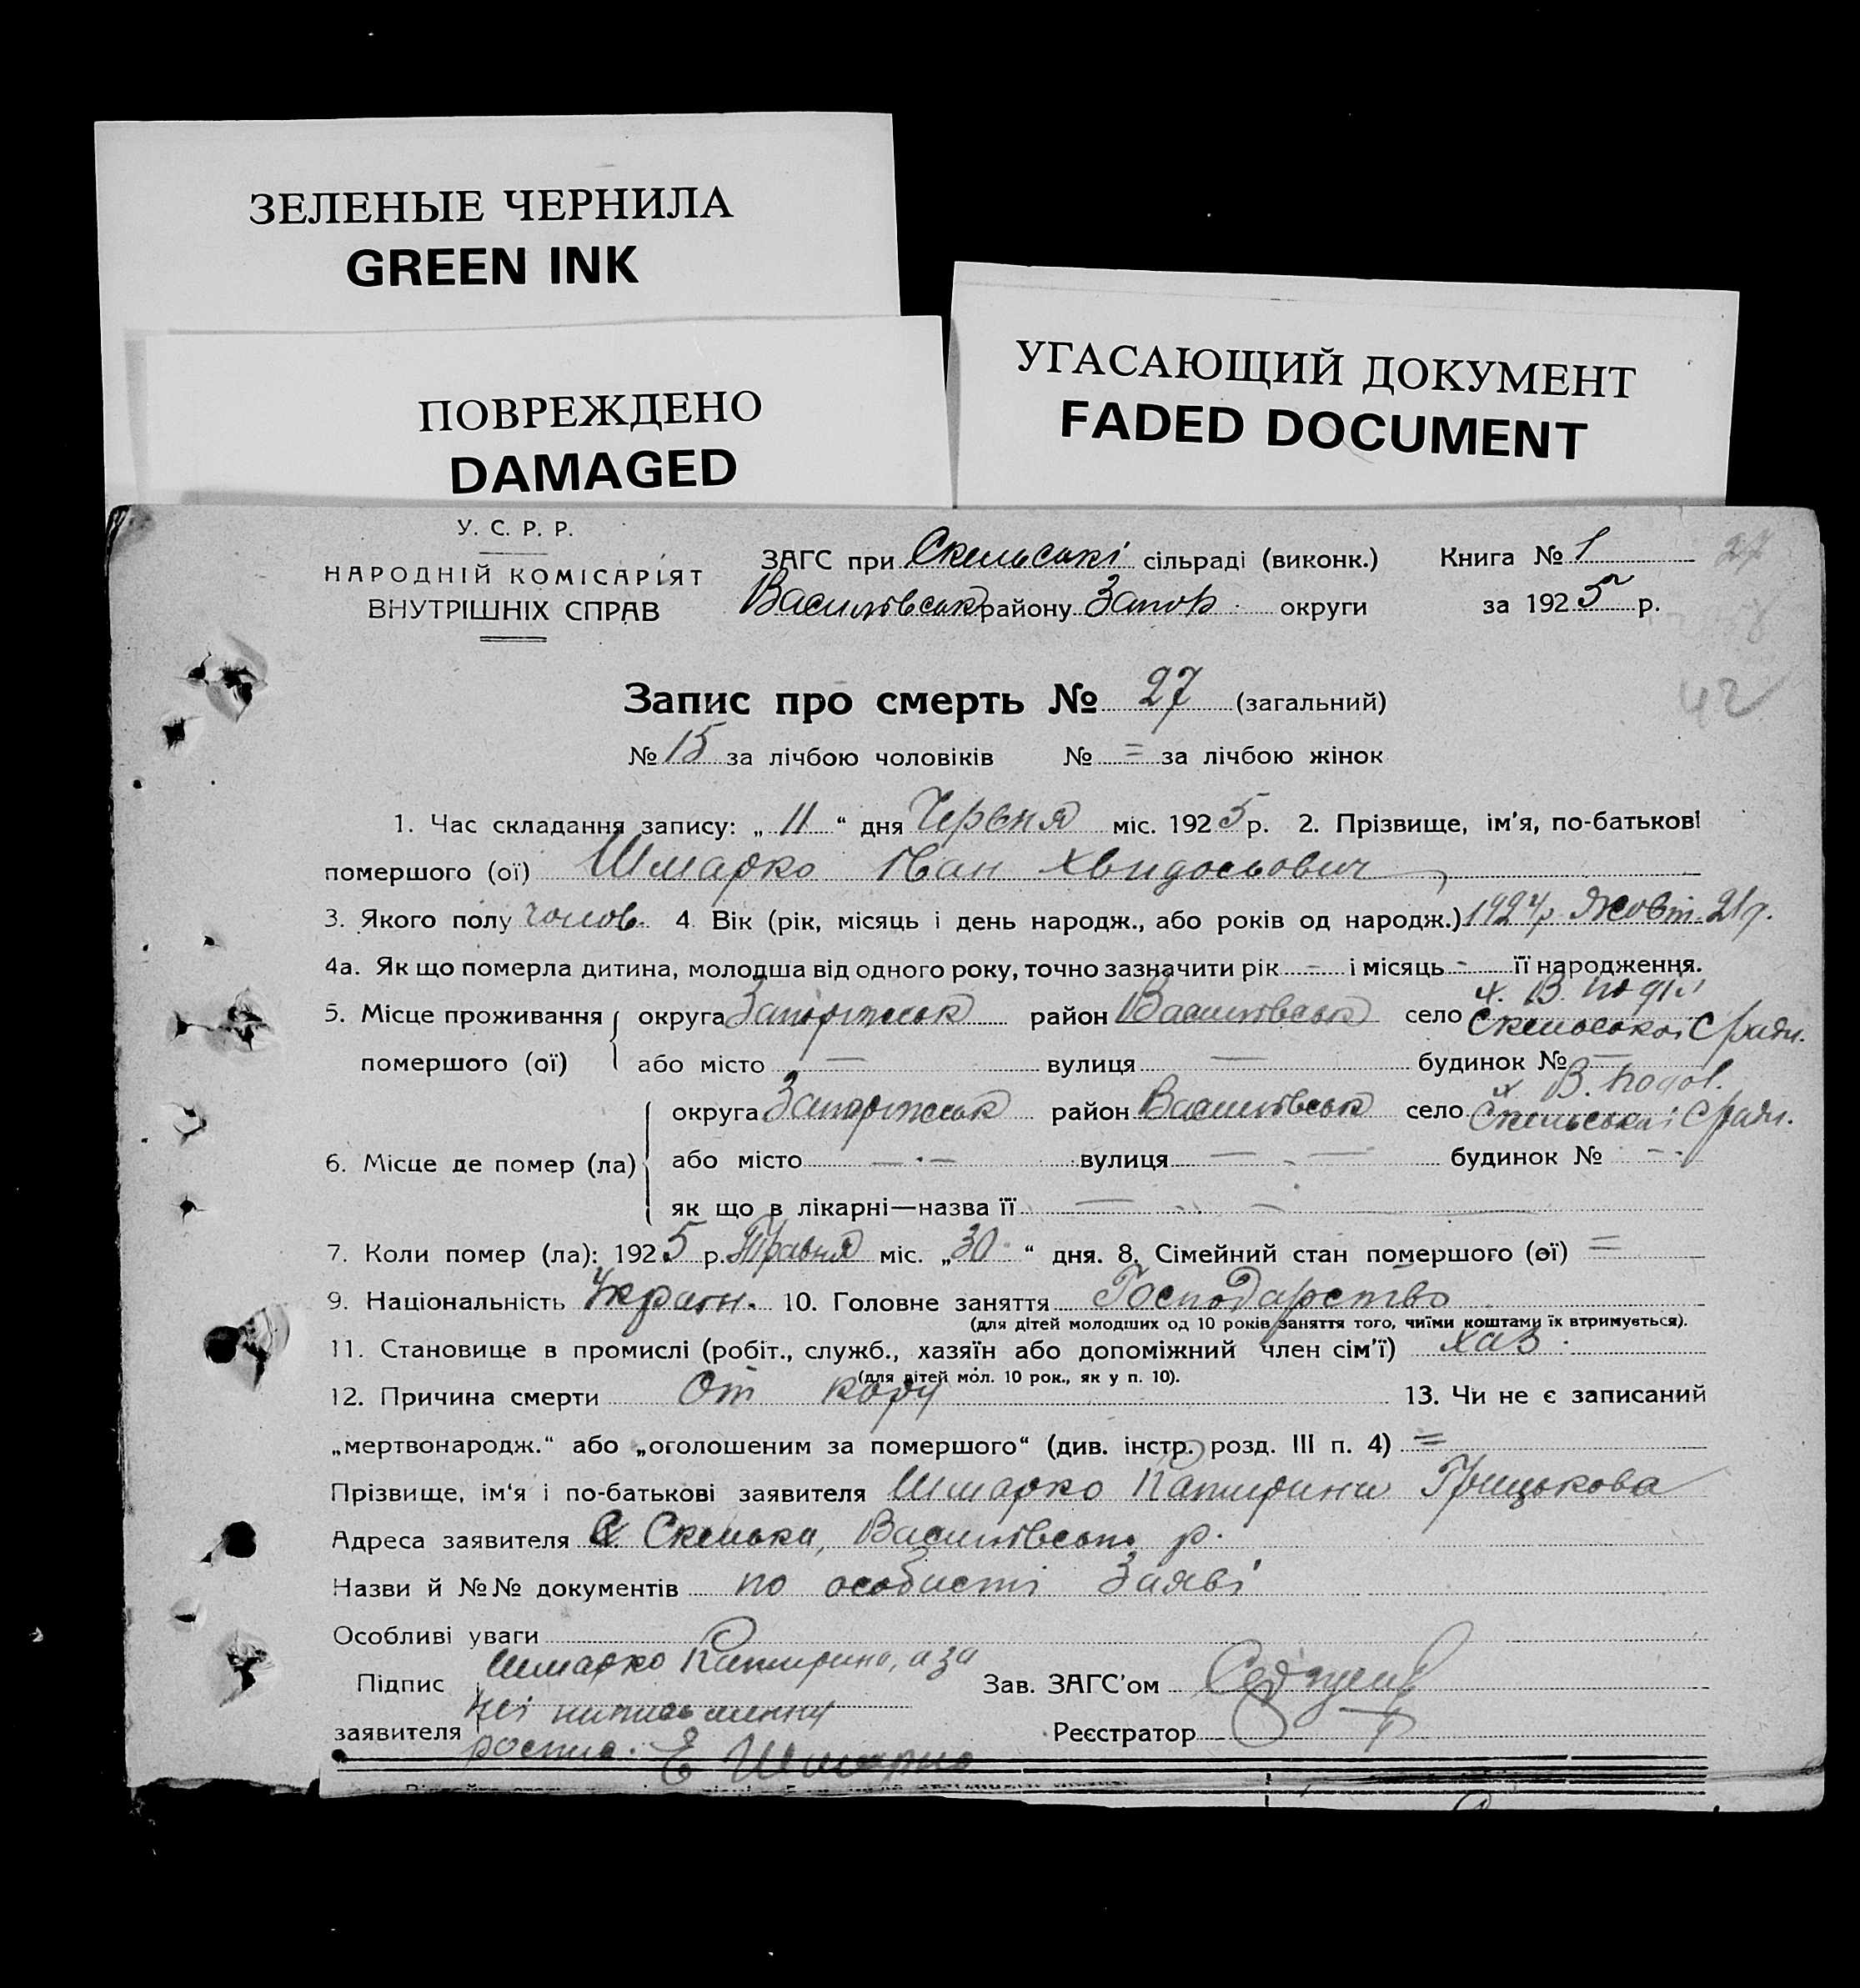 ЗЕЛЕНЫЕ ЧЕРНИЛА
GREEN INK
УГАСАЮЩИЙ ДОКУМЕНТ
FADED DOCUMENT
ПОВРЕЖДЕНО
DAMAGED
У. С. Р. Р.
НАРОДНІЙ КОМІСАРІЯТ
ВНУТРІШНІХ СПРАВ
ЗАГС при Скельські сільраді (виконк.) Книга № 1 27
Василівськ району Запор. округи за 1925 р.
42
Запис про смерть № 27 (загальний)
№ 15 за лічбою чоловіків № = за лічбою жінок
1. Час складання запису: „ 11 “ дня Червня міс. 1925 р. 2. Прізвище, ім'я, по-батькові
помершого (ої) Шмарко Іван Хвидосьович
3. Якого полу чолов. 4 Вік (рік, місяць і день народж., або років од народж.) 1924 р Жовт. 21 д.
4а. Як що померла дитина, молодша від одного року, точно зазначити рік - і місяць - її народження.
5. Місце проживання округа Запоріжськ район Василівськ село х. В.
Скельськоі С ради.
помершого (ої) або місто — вулиця — будинок № —
округа Запоріжськ район Василівськ село х В.
Скельськоі С ради.
6. Місце де помер (ла) або місто — вулиця — будинок № -
як що в лікарні—назва її —
7. Коли помер (ла): 1925 р. Травня міс. „ 30 “ дня. 8. Сімейний стан помершого (ої) =
9. Національність Україн. 10. Головне заняття Господарство
(для дітей молодших од 10 років заняття того, чиїми коштами їх втримується).
11. Становище в промислі (робіт., служб., хазяїн або допоміжний член сім'ї) хаз.
(для дітей мол. 10 рок., як у п. 10).
12. Причина смерти От кору 13. Чи не є записаний
„мертвонародж.“ або „оголошеним за помершого“ (див. інстр. розд. III п. 4) =
Прізвище, ім'я і по-батькові заявителя Шмарко Катирини Грицькова
Адреса заявителя С. Скелька, Василівськ. р.
Назви й №№ документів по особисті Заяві
Особливі уваги
Підпис Шмарко Катирина, а за Зав. ЗАГС'ом
неі
заявителя роспис. Е Шмарко Реєстратор